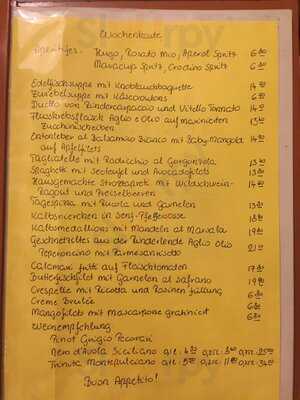 Wochenkarte
Aperitifes: Hugo, Rosato Mio, Aperol Spritz 6.80
Maracuja Spritz, Crodino Spritz 6.80
Edelfischsuppe mit Knoblauchbaguette 14.80
Zwiebelsuppe mit Käsecroutons 6.80
Duetto von Rindercarpaccio und Vitello Tonnato 14.80
Flusskrebsfleisch Aglio e Olio auf marinierten 13.80
Zucchinischeiben
Entenleber al Balsamico Bianco mit Baby-Mangold 14.80
auf Apfelfilets
Tagliatelle mit Radicchio al Gorgonzola 13.80
Spaghetti mit Seeteufel und Avocadofilets 13.80
Hausgemachte Strozzapreti mit Wildschwein- 14.80
Ragout und Preiselbeeren
Tagespizza mit Rucola und Garnelen 13.80
Kalbsnierchen in Senf-Pfeffersosse 18.80
Kalbsmedallions mit Mandeln al Marsala 19.80
Geschnetzeltes aus der Rinderlende Aglio Olio 21.80
Peperoncino mit Parmesanrisotto
Calamari fritti auf Fleischtomaten 17.80
Butterfischfilet mit Garnelen al Safrano 19.80
Crespelle mit Ricotta und Rosinen füllung 6.80
Creme Brulée 6.80
Mangofilets mit Mascarpone gratiniert 6.80
Weinempfehlung
Pinot Grigio Pecorari
Nero d'Avola Siciliano
Montepulciano
Buon Appetito!